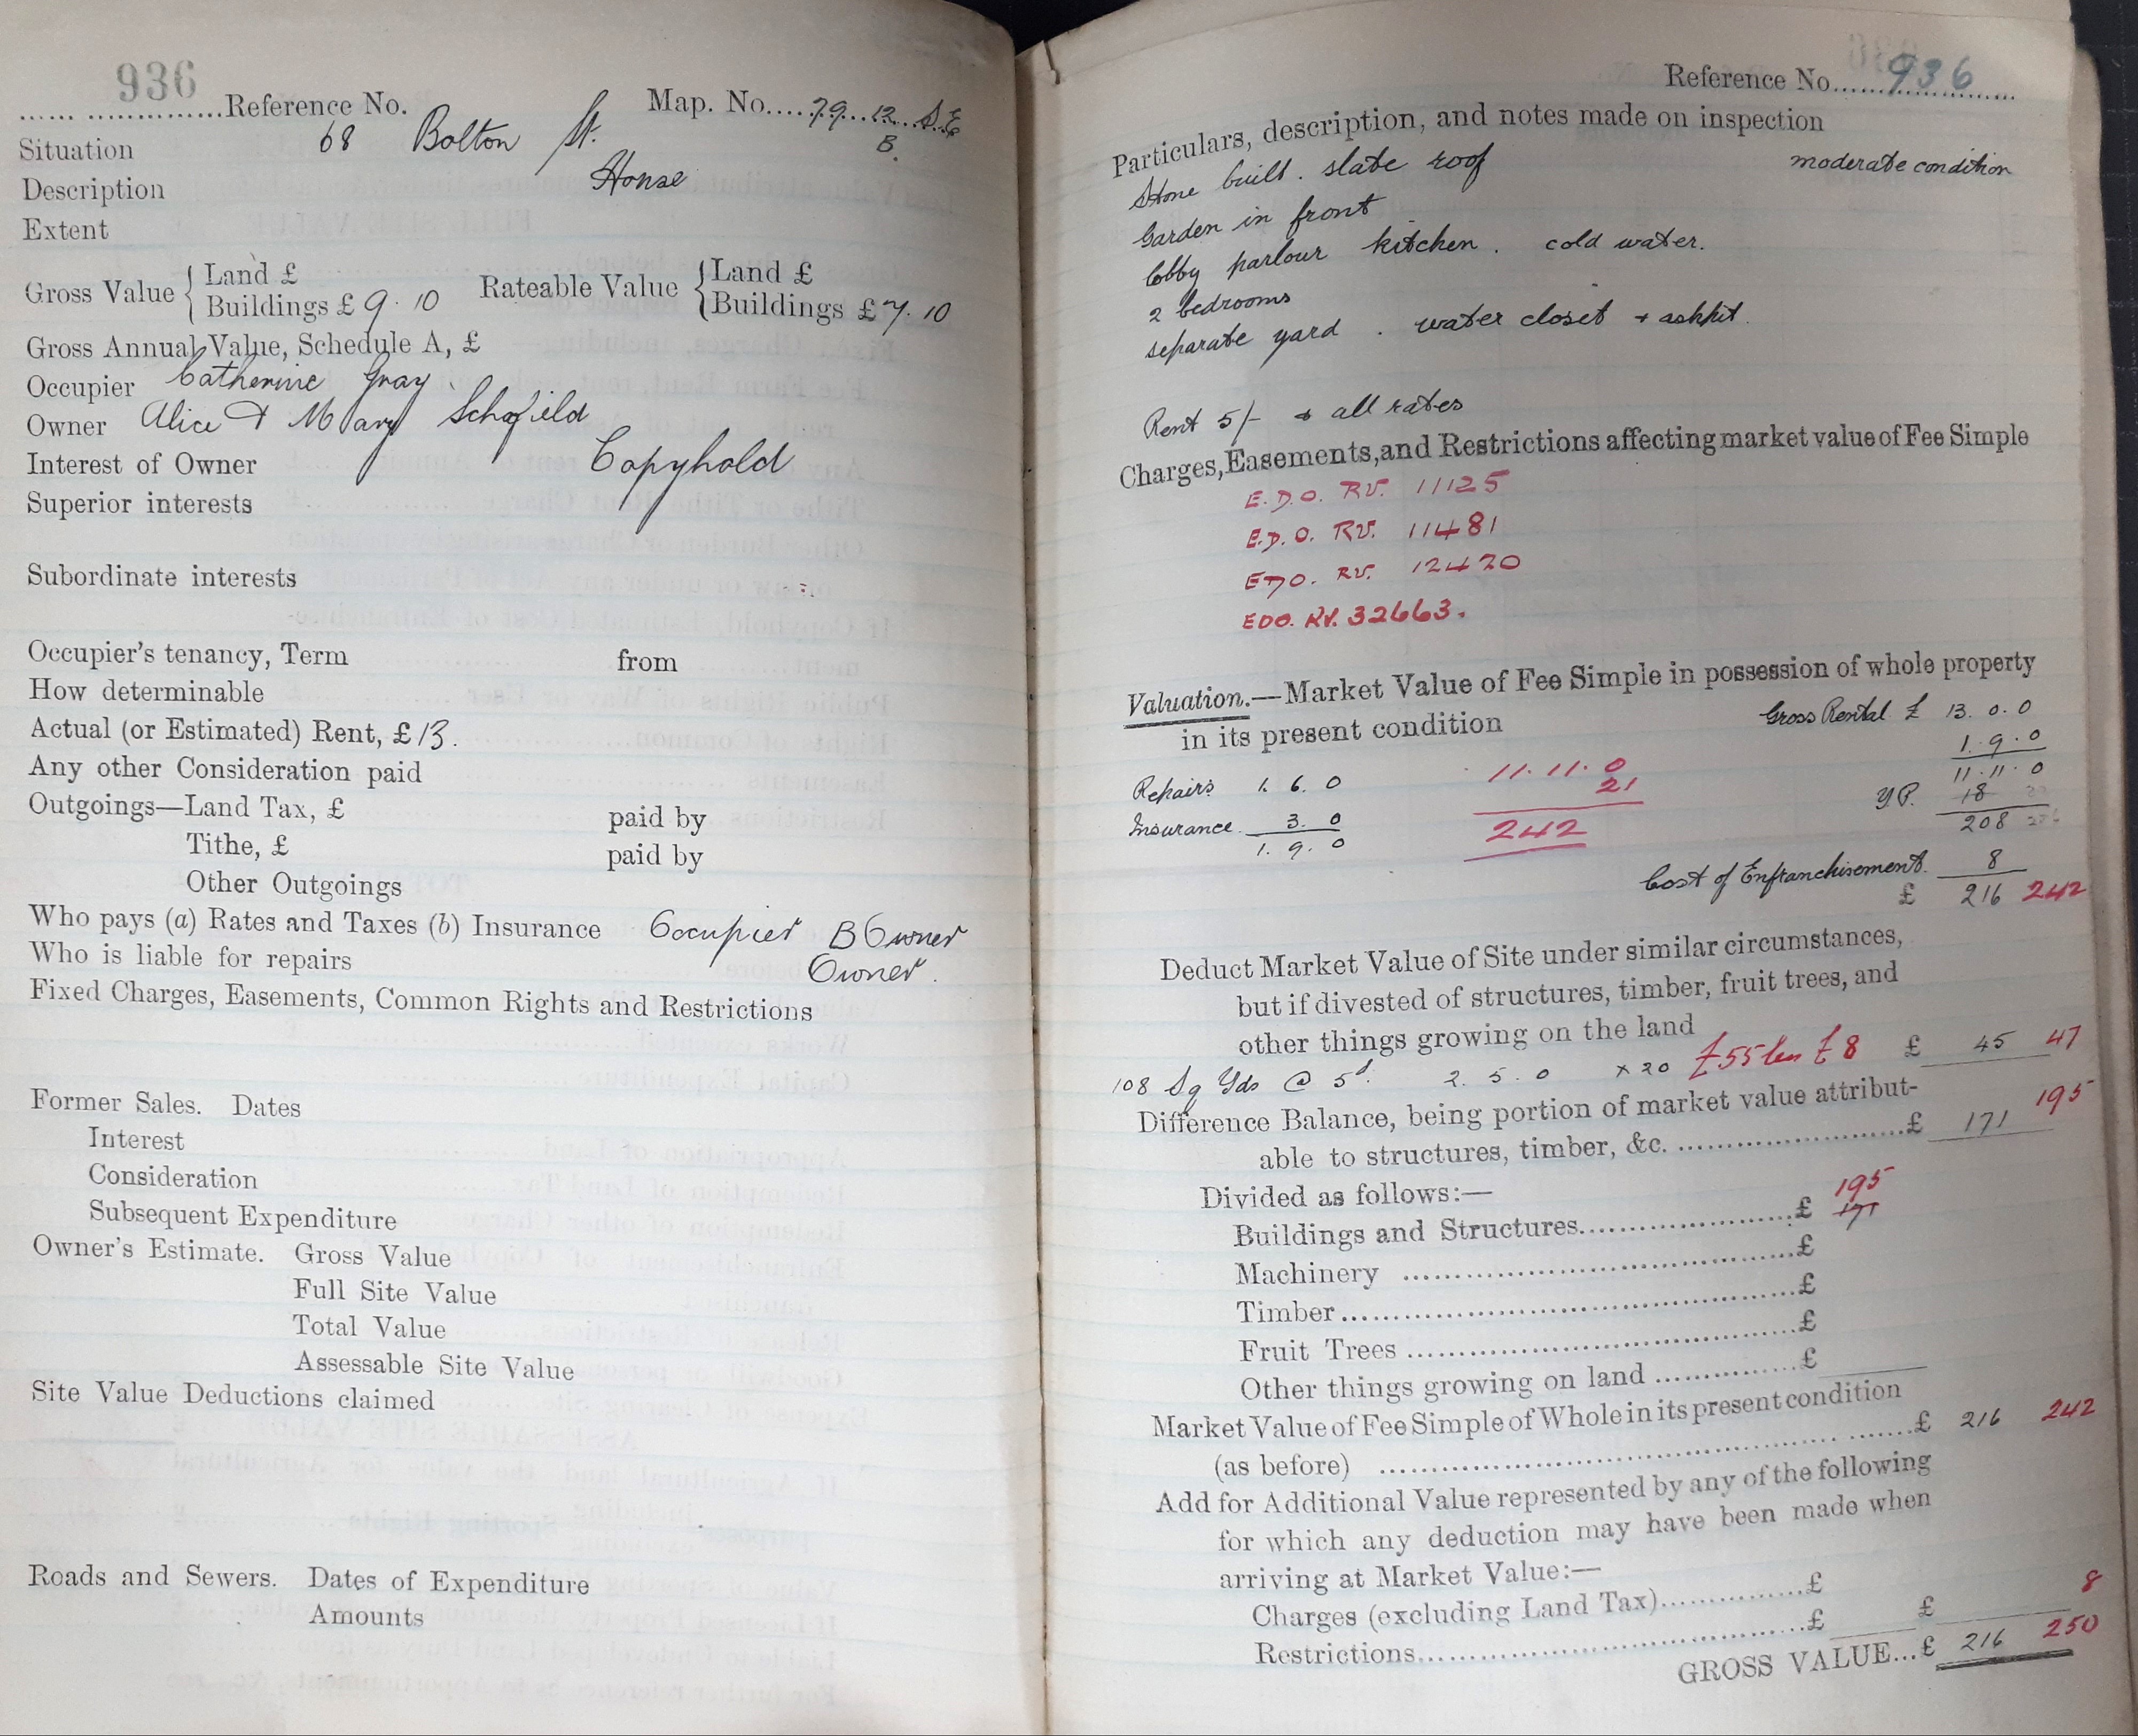 936
...... ..............Reference No. Map. No....79...12...S.E
B.
Situation 68 Bolton St.
Description House
Extent
Gross Value { Land £
Buildings £ 9. 10
Rateable Value { Land £
Buildings £ 7. 10
Gross Annual Value, Schedule A, £
Occupier Catherine Gray
Owner Alice & Mary Schofield
Interest of Owner Copyhold
Superior interests
Subordinate interests
Occupier's tenancy, Term from
How determinable
Actual (or Estimated) Rent, £ 13.
Any other Consideration paid
Outgoings—Land Tax, £ paid by
Tithe, £ paid by
Other Outgoings
Who pays (a) Rates and Taxes (b) Insurance Occupier B Owner
Who is liable for repairs Owner.
Fixed Charges, Easements, Common Rights and Restrictions
Former Sales. Dates
Interest
Consideration
Subsequent Expenditure
Owner's Estimate. Gross Value
Full Site Value
Total Value
Assessable Site Value
Site Value Deductions claimed
Roads and Sewers. Dates of Expenditure
Amounts
Reference No......936
Particulars, description, and notes made on inspection
Stone built. slate roof moderate condition
Garden in front
lobby parlour kitchen. cold water.
2 bedrooms
separate yard. water closet + ashpit.
Rent 5/- + all rates
Charges, Easements, and Restrictions affecting market value of Fee Simple
E.D.O. RV. 11125
E.D.O. RV. 11481
EDO. RV. 12420
EDO. RV. 32663.
Valuation.—Market Value of Fee Simple in possession of whole property
in its present condition Gross Rental £ 13. 0. 0
1. 9. 0
Repairs 1. 6. 0 11. 11. 0 11. 11. 0
21 Y.P. 18
Insurance. 3. 0 242 208
1. 9. 0
Cost of Enfranchisement. 8
£ 216 242
Deduct Market Value of Site under similar circumstances,
but if divested of structures, timber, fruit trees, and
other things growing on the land £55 less £8 £ 45 47
108 Sq Yds @ 5d. 2. 5. 0 x 20
Difference Balance, being portion of market value attribut- 195
able to structures, timber, &c. ........................£ 171
Divided as follows:— 195
Buildings and Structures........................£ 171
Machinery ........................£
Timber........................£
Fruit Trees ........................£
Other things growing on land ...............£
Market Value of Fee Simple of Whole in its present condition
(as before) ........................£ 216 242
Add for Additional Value represented by any of the following
for which any deduction may have been made when
arriving at Market Value:—
Charges (excluding Land Tax)...............£ 8
Restrictions........................£ £
GROSS VALUE...£ 216 250